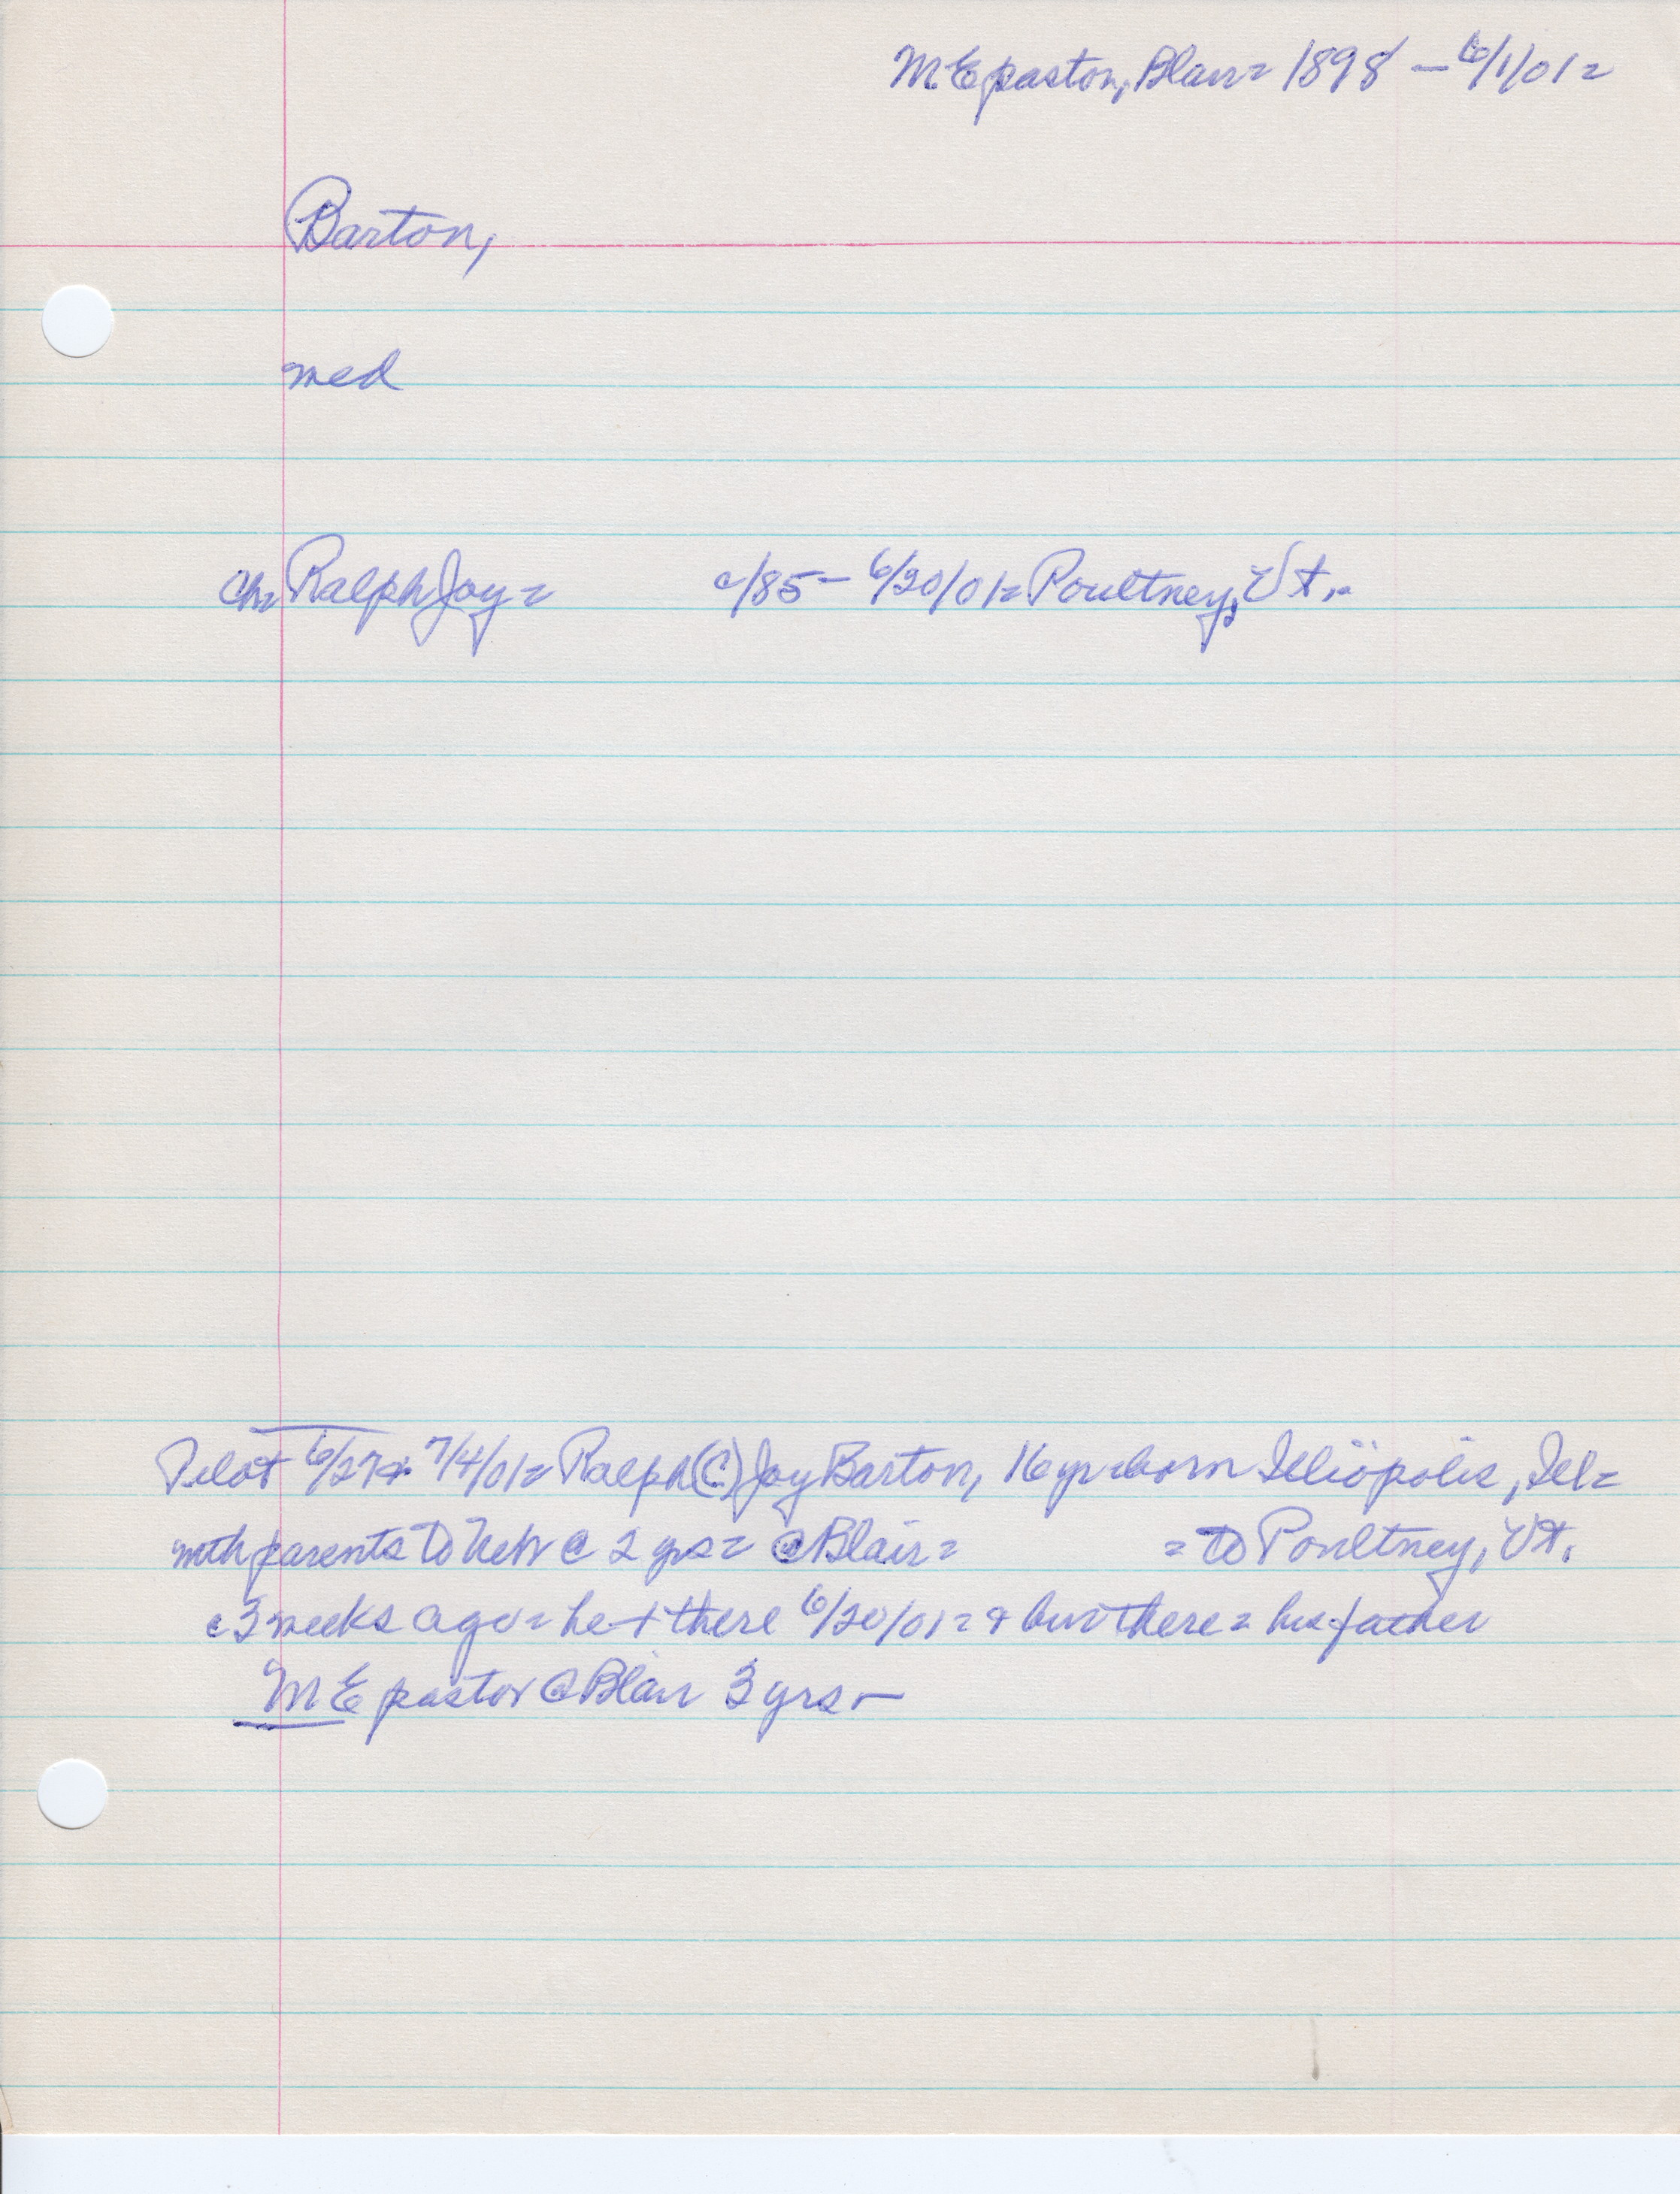 ME pastor, Blair= 1898 – 6/1/01=
Barton,
med
Ch= Ralph Jay= c/85– 6/20/01= Poultney, Vt.=
Pilot 6/27& 7/4/01= Ralph (C) Jay Barton, 16 yr=born Illiopolis, Ill=
with parents to Neb c 2 yrs= @ Blair= = to Poultney, Vt.
c 3 weeks ago= he + there 6/20/01= & bur there= his father
ME pastor @ Blair 3 yrs–